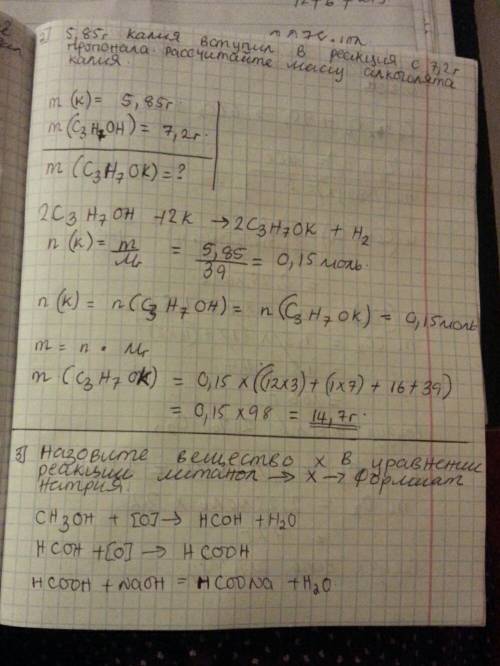 2) 5,85г калия вступил в реакция с 7,2г
пропонала. рассчитайте массу алкоголята
калия.
m (K) = 5,85г
m (C3H7OH) = 7,2г.
m (C3H7OK) = ?
2C3H7OH + 2K → 2C3H7OK + H2
n (K) = m/Mr = 5,85/39 = 0,15 моль.
n (K) = n (C3H7OH) = n (C3H7OK) = 0,15 моль
m = n · Mr
m (C3H7OK) = 0,15 × ((12×3) + (1×7) + 16 + 39)
= 0,15 × 98 = 14,7г.
3) Назовите вещество X в уравнении
реакции метанол → X → Формиат
натрия.
CH3OH + [O] → HCOH + H2O
HCOH + [O] → HCOOH
HCOOH + NaOH = HCOONa + H2O